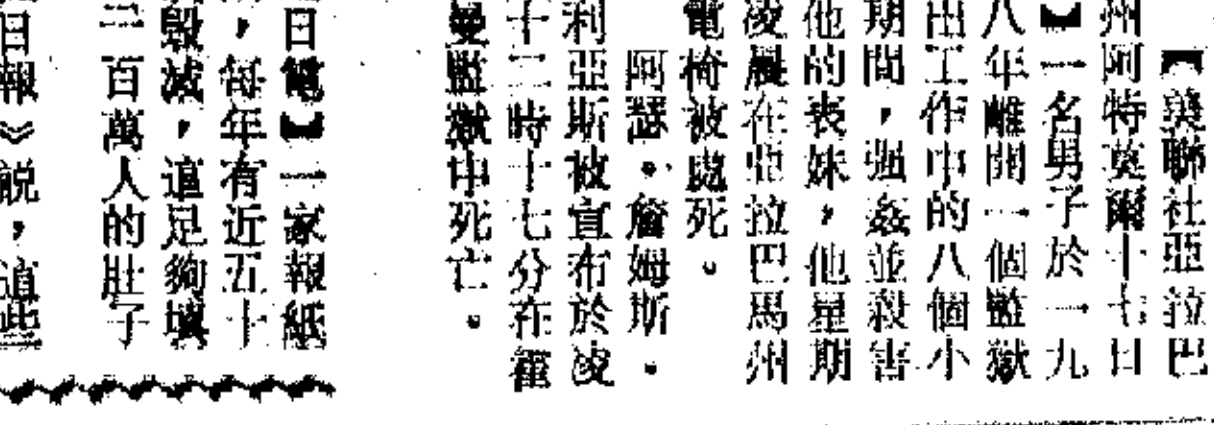 【美聯社亞拉巴
州阿特莫爾十七日
】一名男子於一九
八年離開一個監獄
出工作中的八個小
期間，强姦並殺害
他的表妹，他星期
凌晨在亞拉巴馬州
電椅被處死。
阿瑟·詹姆斯·
利亞斯被宣布於凌
十二時十七分在霍
曼監獄中死亡。
日電】一家報紙
，每年有近五十
毀滅，這足夠填
二百萬人的肚子
日報》説，這些